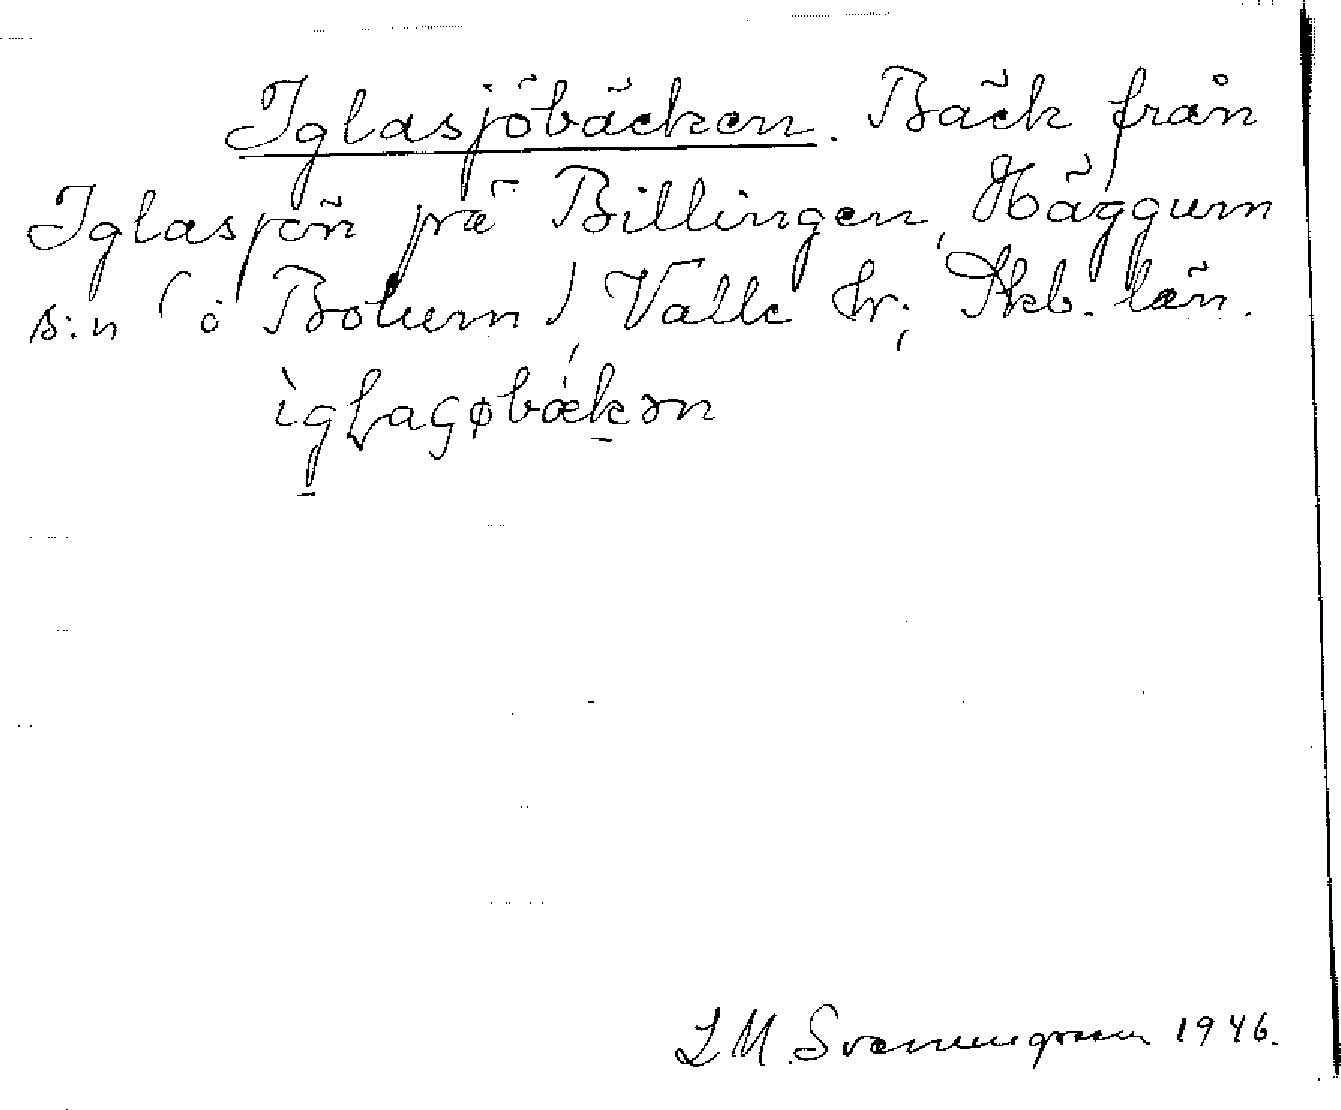 Iglasjöbäcken. Bäck från
Iglasjön på Billingen, Häggum
s:n (o Bolum), Valle hr; Skb. län.
L M Svenungsson 1946.